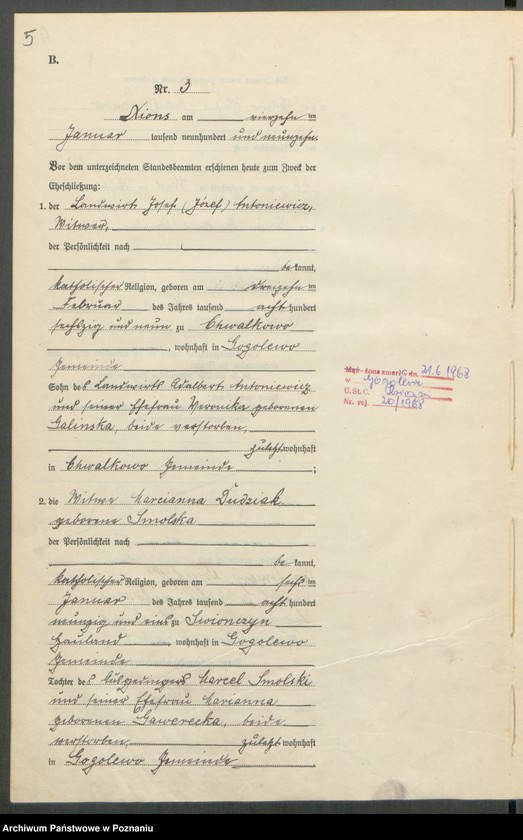 5
B.
Nr. 3
Xions am vierzehn ten
Januar tausend neunhundert und neunzehn.
Vor dem unterzeichneten Standesbeamten erschienen heute zum Zweck der
Eheschließung:
1. der Landwirt Josef (Józef) Antoniewicz,
Witwer,
der Persönlichkeit nach
bekannt,
katholischer Religion, geboren am dreizehn ten
Februar des Jahres tausend acht hundert
sechszig und neun zu Chwalkowo
, wohnhaft in Gogolewo
Gemeinde
Sohn des Landwirts Adalbert Antoniewicz
und seiner Ehefrau Veronika geborenen
Galinska, beide verstorben,
zuletzt wohnhaft
in Chwalkowo Gemeinde ;
2. die Witwe Marcianna Dudziak
geborene Smolska
der Persönlichkeit nach
bekannt,
katholischer Religion, geboren am sechs ten
Januar des Jahres tausend acht hundert
neunzig und eins zu
Hauland , wohnhaft in Gogolewo
Gemeinde
Tochter des Marcel Smolski
und seiner Ehefrau Marianna
geborenen Gawerecka, beide
verstorben zuletzt wohnhaft
in Gogolewo Gemeinde
żona zmarł dn. 21.6 1968
w Gogolewo
U.S.C. Książ
Nr. rej. 20/1968
Archiwum Państwowe w Poznaniu